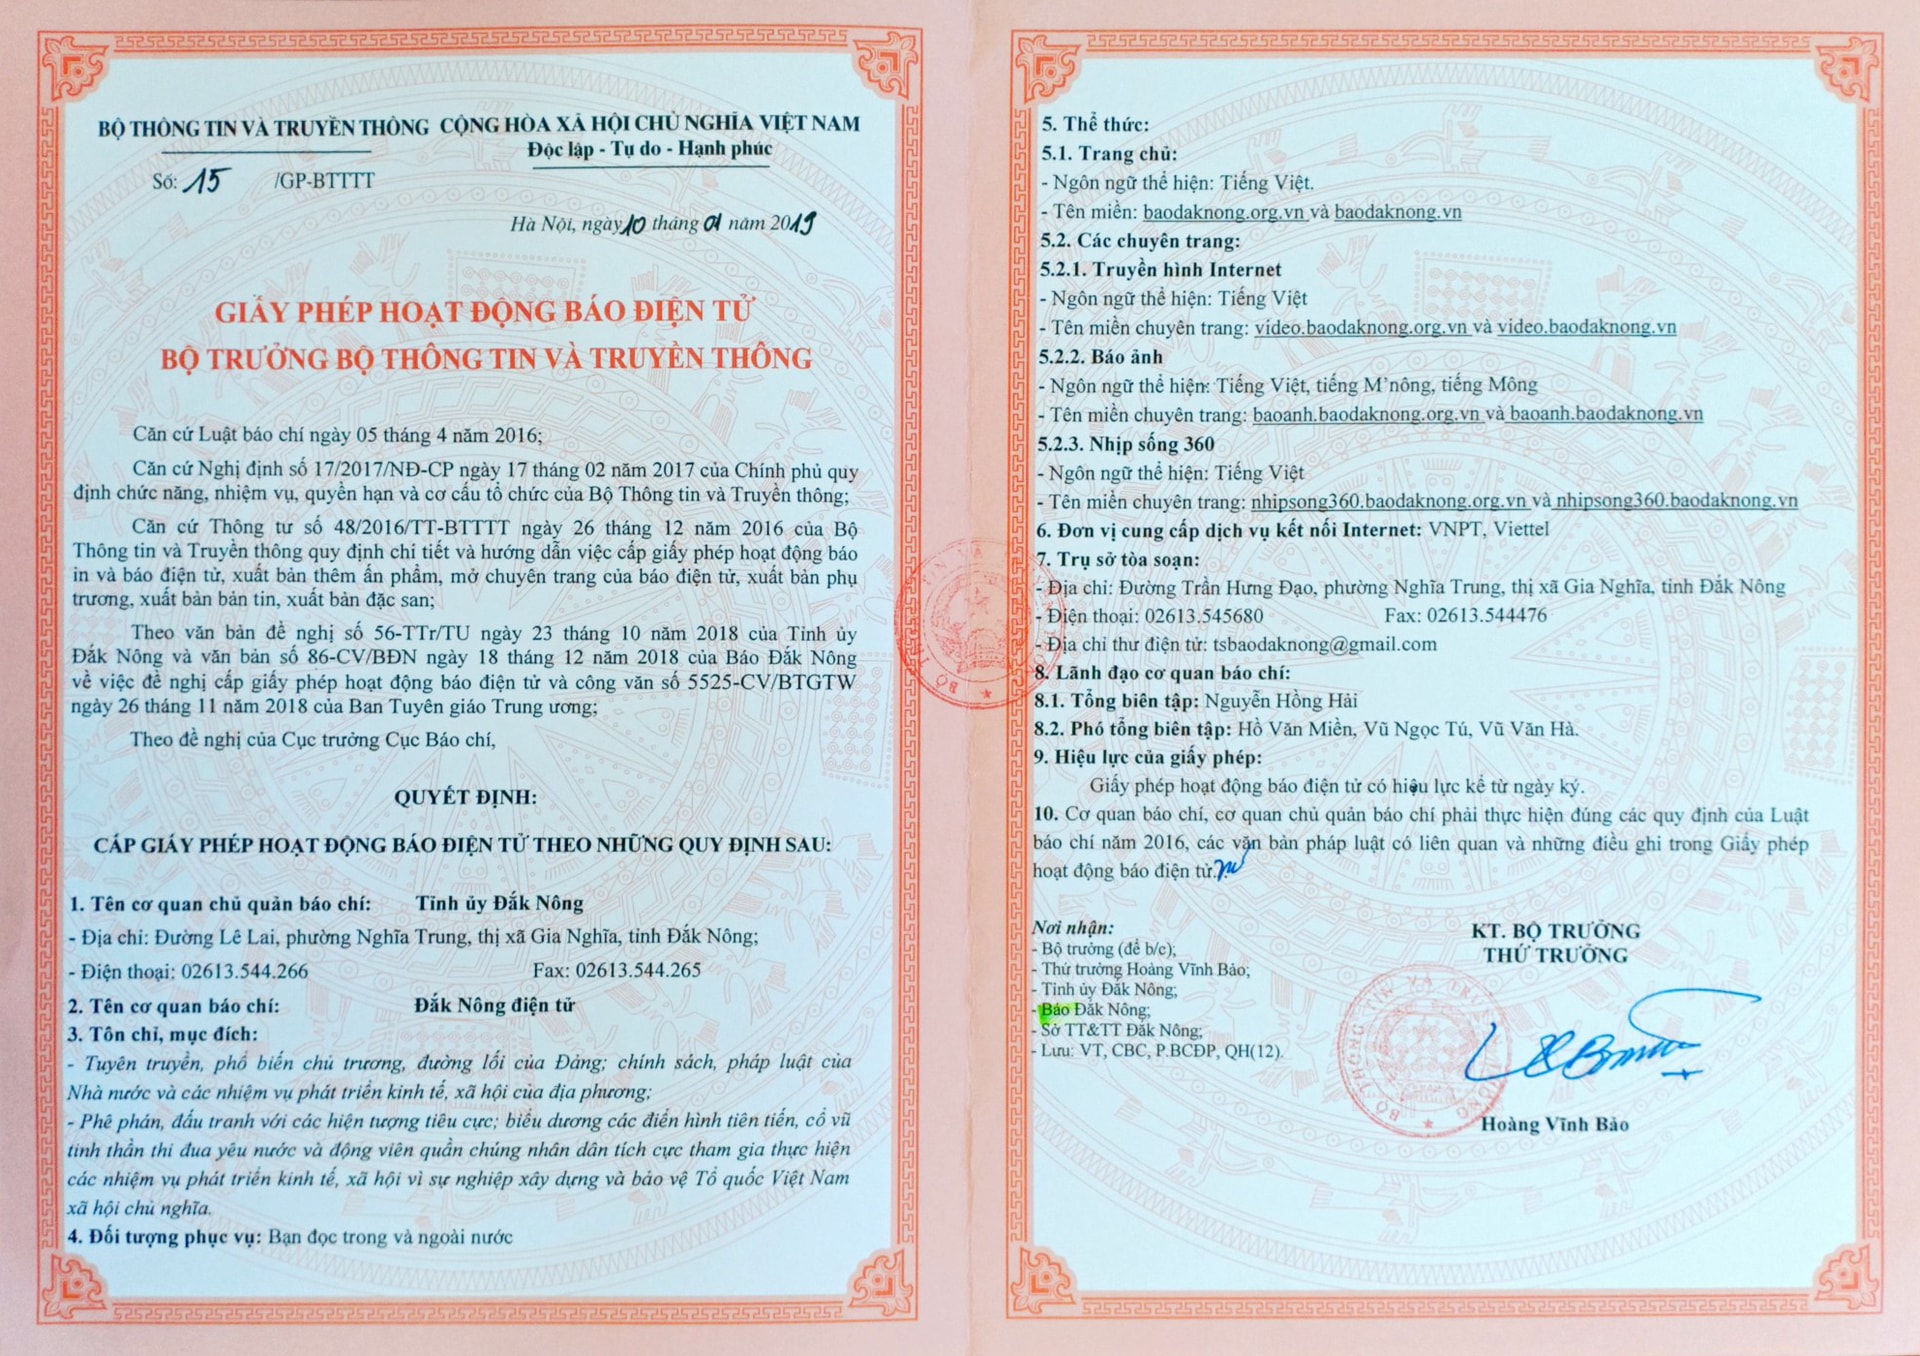 BỘ THÔNG TIN VÀ TRUYỀN THÔNG
Số: 15 /GP-BTTTT
CỘNG HÒA XÃ HỘI CHỦ NGHĨA VIỆT NAM
Độc lập - Tự do - Hạnh phúc
Hà Nội, ngày 10 tháng 01 năm 2019
GIẤY PHÉP HOẠT ĐỘNG BÁO ĐIỆN TỬ
BỘ TRƯỞNG BỘ THÔNG TIN VÀ TRUYỀN THÔNG
Căn cứ Luật báo chí ngày 05 tháng 4 năm 2016;
Căn cứ Nghị định số 17/2017/NĐ-CP ngày 17 tháng 02 năm 2017 của Chính phủ quy
định chức năng, nhiệm vụ, quyền hạn và cơ cấu tổ chức của Bộ Thông tin và Truyền thông;
Căn cứ Thông tư số 48/2016/TT-BTTTT ngày 26 tháng 12 năm 2016 của Bộ
Thông tin và Truyền thông quy định chi tiết và hướng dẫn việc cấp giấy phép hoạt động báo
in và báo điện tử, xuất bản thêm ấn phẩm, mở chuyên trang của báo điện tử, xuất bản phụ
trương, xuất bản bản tin, xuất bản đặc san;
Theo văn bản đề nghị số 56-TTr/TU ngày 23 tháng 10 năm 2018 của Tỉnh ủy
Đắk Nông và văn bản số 86-CV/BĐN ngày 18 tháng 12 năm 2018 của Báo Đắk Nông
về việc đề nghị cấp giấy phép hoạt động báo điện tử và công văn số 5525-CV/BTGTW
ngày 26 tháng 11 năm 2018 của Ban Tuyên giáo Trung ương;
Theo đề nghị của Cục trưởng Cục Báo chí,
QUYẾT ĐỊNH:
CẤP GIẤY PHÉP HOẠT ĐỘNG BÁO ĐIỆN TỬ THEO NHỮNG QUY ĐỊNH SAU:
1. Tên cơ quan chủ quản báo chí: Tỉnh ủy Đắk Nông
- Địa chỉ: Đường Lê Lai, phường Nghĩa Trung, thị xã Gia Nghĩa, tỉnh Đắk Nông;
- Điện thoại: 02613.544.266 Fax: 02613.544.265
2. Tên cơ quan báo chí: Đắk Nông điện tử
3. Tôn chỉ, mục đích:
- Tuyên truyền, phổ biến chủ trương, đường lối của Đảng; chính sách, pháp luật của
Nhà nước và các nhiệm vụ phát triển kinh tế, xã hội của địa phương;
- Phê phán, đấu tranh với các hiện tượng tiêu cực; biểu dương các điển hình tiên tiến, cổ vũ
tinh thần thi đua yêu nước và động viên quần chúng nhân dân tích cực tham gia thực hiện
các nhiệm vụ phát triển kinh tế, xã hội vì sự nghiệp xây dựng và bảo vệ Tổ quốc Việt Nam
xã hội chủ nghĩa.
4. Đối tượng phục vụ: Bạn đọc trong và ngoài nước
5. Thể thức:
5.1. Trang chủ:
- Ngôn ngữ thể hiện: Tiếng Việt.
- Tên miền: baodaknong.org.vn và baodaknong.vn
5.2. Các chuyên trang:
5.2.1. Truyền hình Internet
- Ngôn ngữ thể hiện: Tiếng Việt
- Tên miền chuyên trang: video.baodaknong.org.vn và video.baodaknong.vn
5.2.2. Báo ảnh
- Ngôn ngữ thể hiện: Tiếng Việt, tiếng M'nông, tiếng Mông
- Tên miền chuyên trang: baoanh.baodaknong.org.vn và baoanh.baodaknong.vn
5.2.3. Nhịp sống 360
- Ngôn ngữ thể hiện: Tiếng Việt
- Tên miền chuyên trang: nhipsong360.baodaknong.org.vn và nhipsong360.baodaknong.vn
6. Đơn vị cung cấp dịch vụ kết nối Internet: VNPT, Viettel
7. Trụ sở tòa soạn:
- Địa chỉ: Đường Trần Hưng Đạo, phường Nghĩa Trung, thị xã Gia Nghĩa, tỉnh Đắk Nông
- Điện thoại: 02613.545680 Fax: 02613.544476
- Địa chỉ thư điện tử: tsbaodaknong@gmail.com
8. Lãnh đạo cơ quan báo chí:
8.1. Tổng biên tập: Nguyễn Hồng Hải
8.2. Phó tổng biên tập: Hồ Văn Miền, Vũ Ngọc Tú, Vũ Văn Hà.
9. Hiệu lực của giấy phép:
Giấy phép hoạt động báo điện tử có hiệu lực kể từ ngày ký.
10. Cơ quan báo chí, cơ quan chủ quản báo chí phải thực hiện đúng các quy định của Luật
báo chí năm 2016, các văn bản pháp luật có liên quan và những điều ghi trong Giấy phép
hoạt động báo điện tử.
Nơi nhận:
- Bộ trưởng (để b/c);
- Thứ trưởng Hoàng Vĩnh Bảo;
- Tỉnh ủy Đắk Nông;
- Báo Đắk Nông;
- Sở TT&TT Đắk Nông;
- Lưu: VT, CBC, P.BCĐP, QH(12).
KT. BỘ TRƯỞNG
THỨ TRƯỞNG
Hoàng Vĩnh Bảo